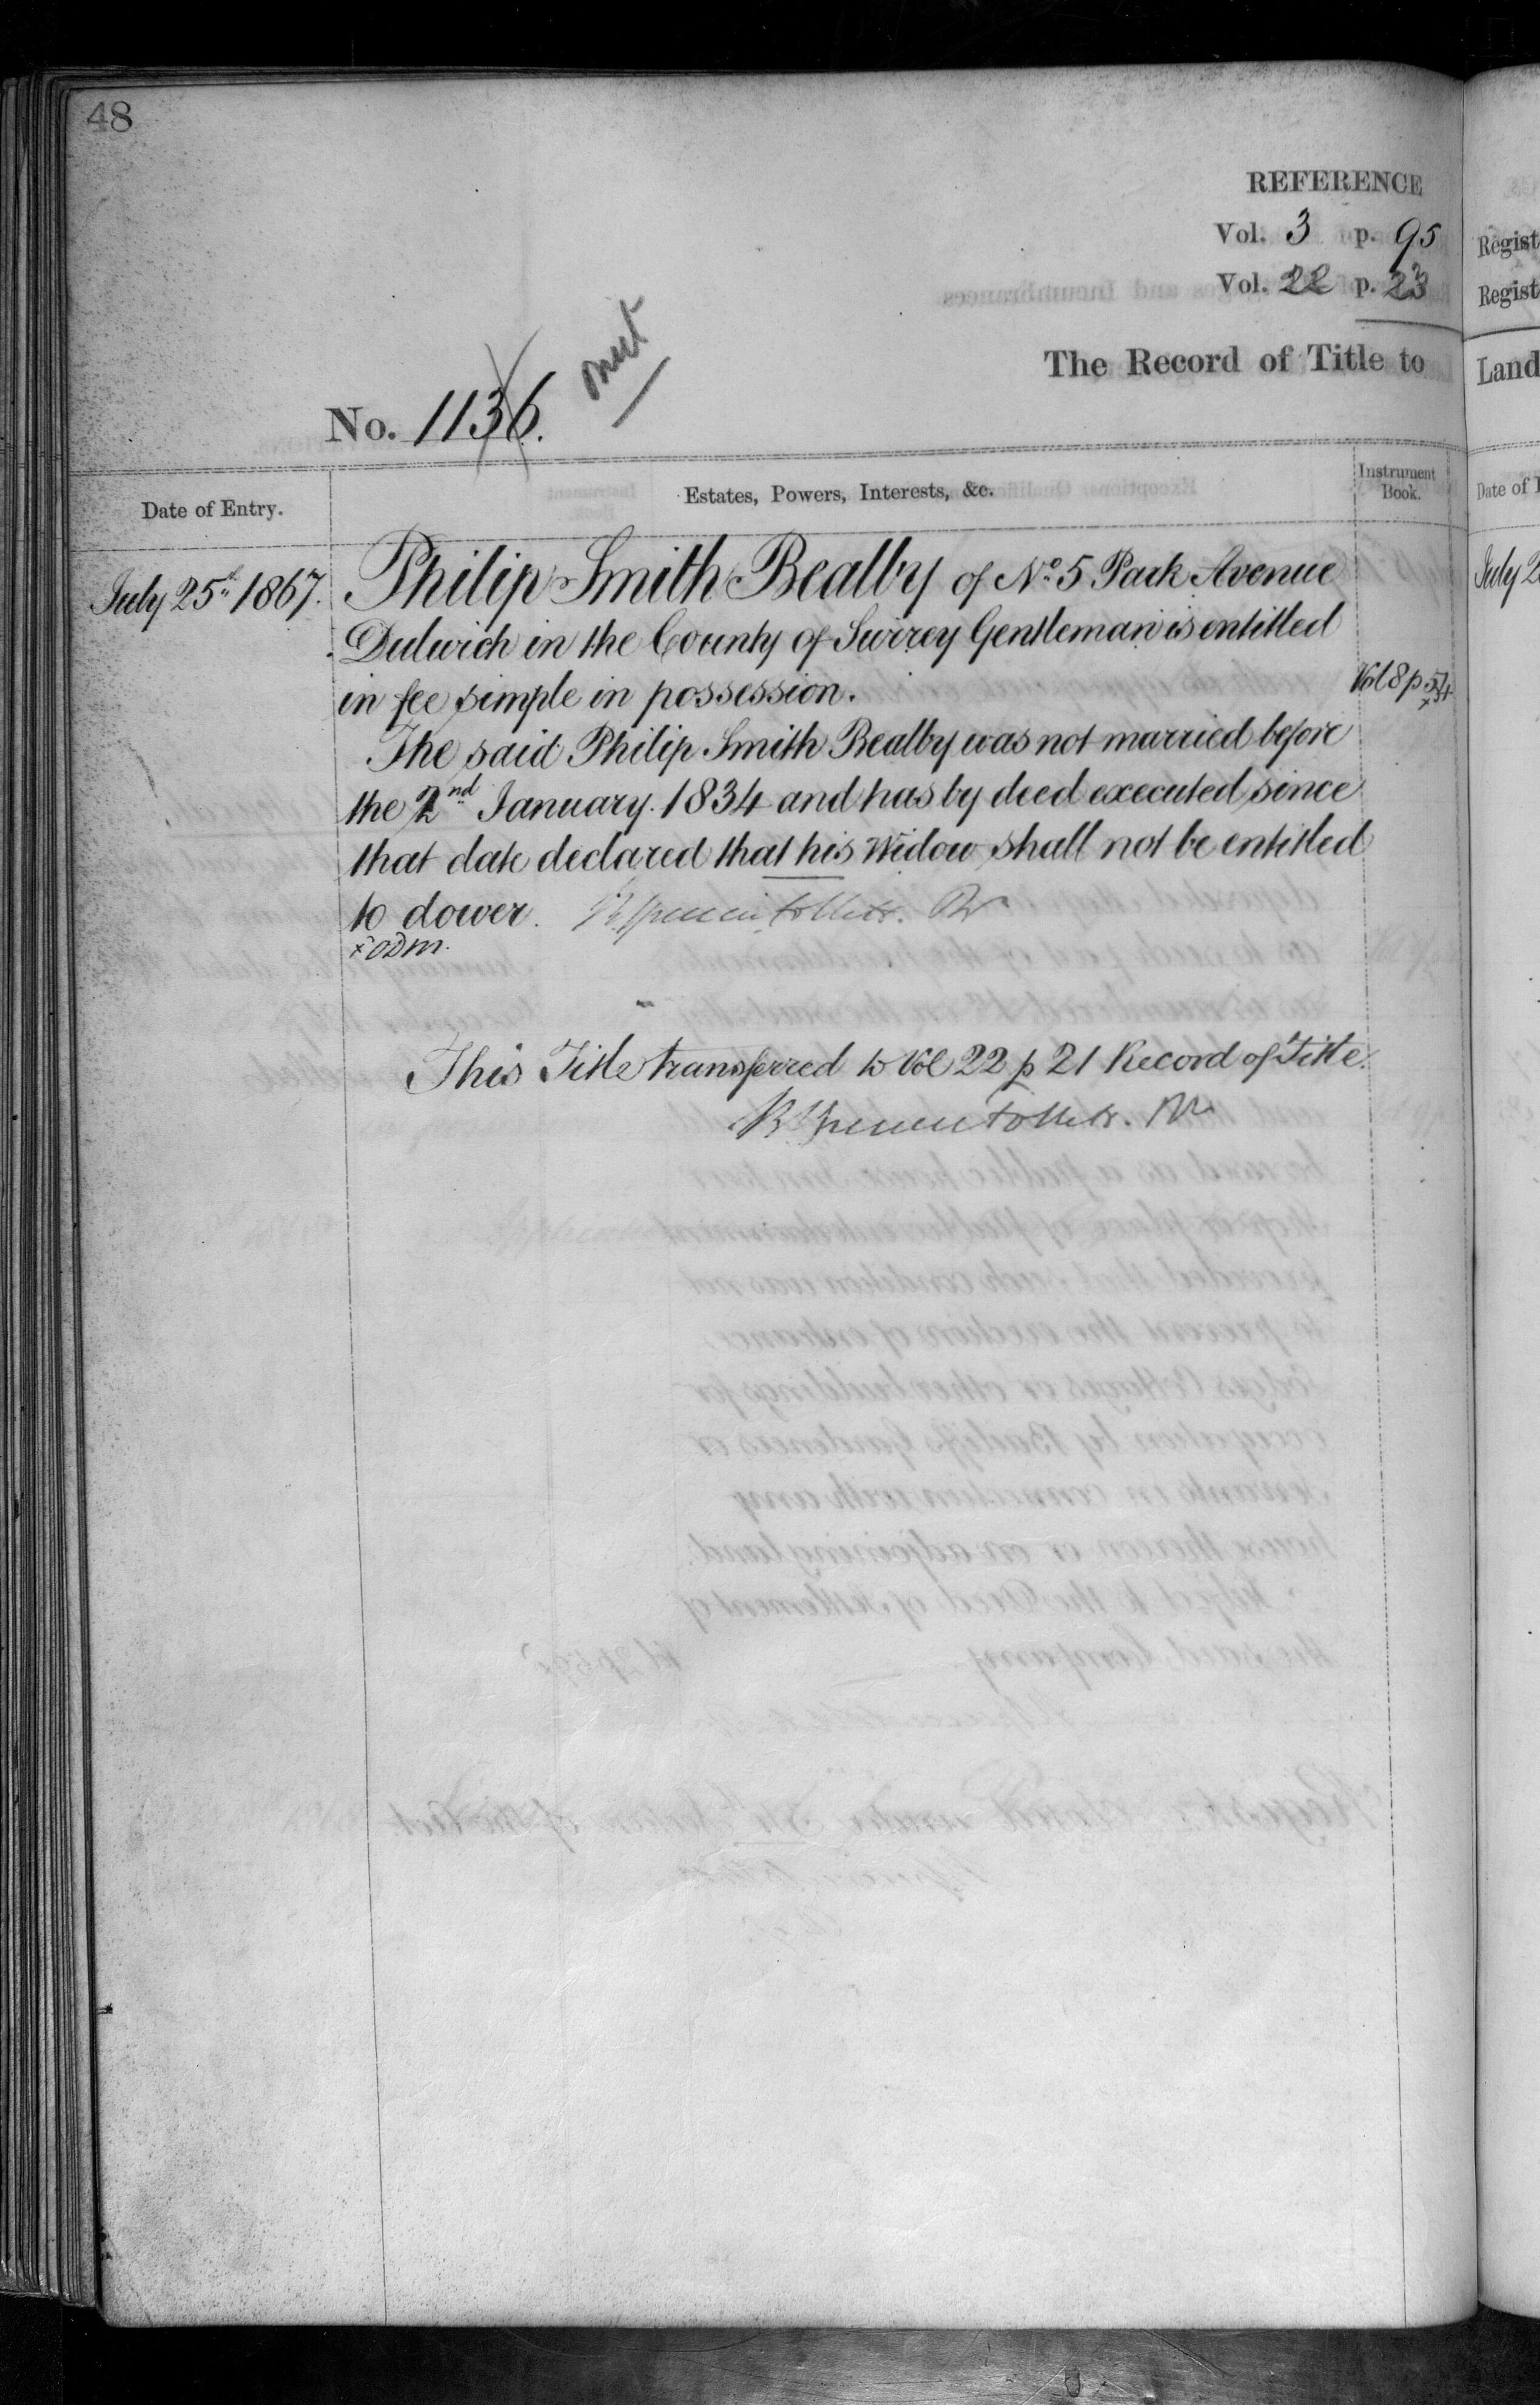 48
REFERENCE
Vol. 3 p. 95
Vol. 22 p. 23
The Record of Title to
No. 1136.
Date of Entry.
Estates, Powers, Interests, &c.
Instrument
Book.
July 25th 1867.
Philip Smith Bealby of No. 5 Park Avenue
Dulwich in the County of Surrey Gentleman is entitled
in fee simple in possession.
Vol 8 p 54
The said Philip Smith Bealby was not married before
the 2nd January 1834 and has by deed executed since
that date declared that his Widow shall not be entitled
to dower.
This Title transferred to Vol 22 p 21 Record of Title.
Regist
Regist
Land
Date of
July 2